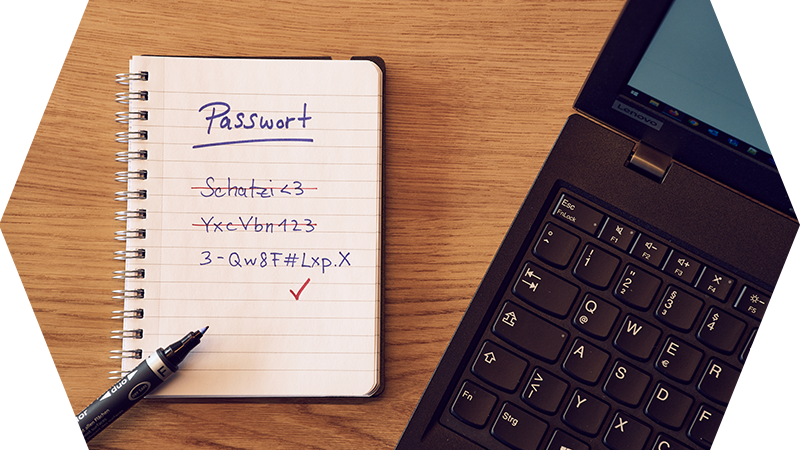 Passwort
Schatzi <3
YxcVbn123
3-Qw8F#Lxp.X
duo
Lenovo
Esc
FnLock
F1
F2
F3
F4
F5
° ^
! 1
" 2
§ 3
$ 4
Q @
W
E €
R
A
S
D
F
> < |
Y
X
C
Fn
Strg